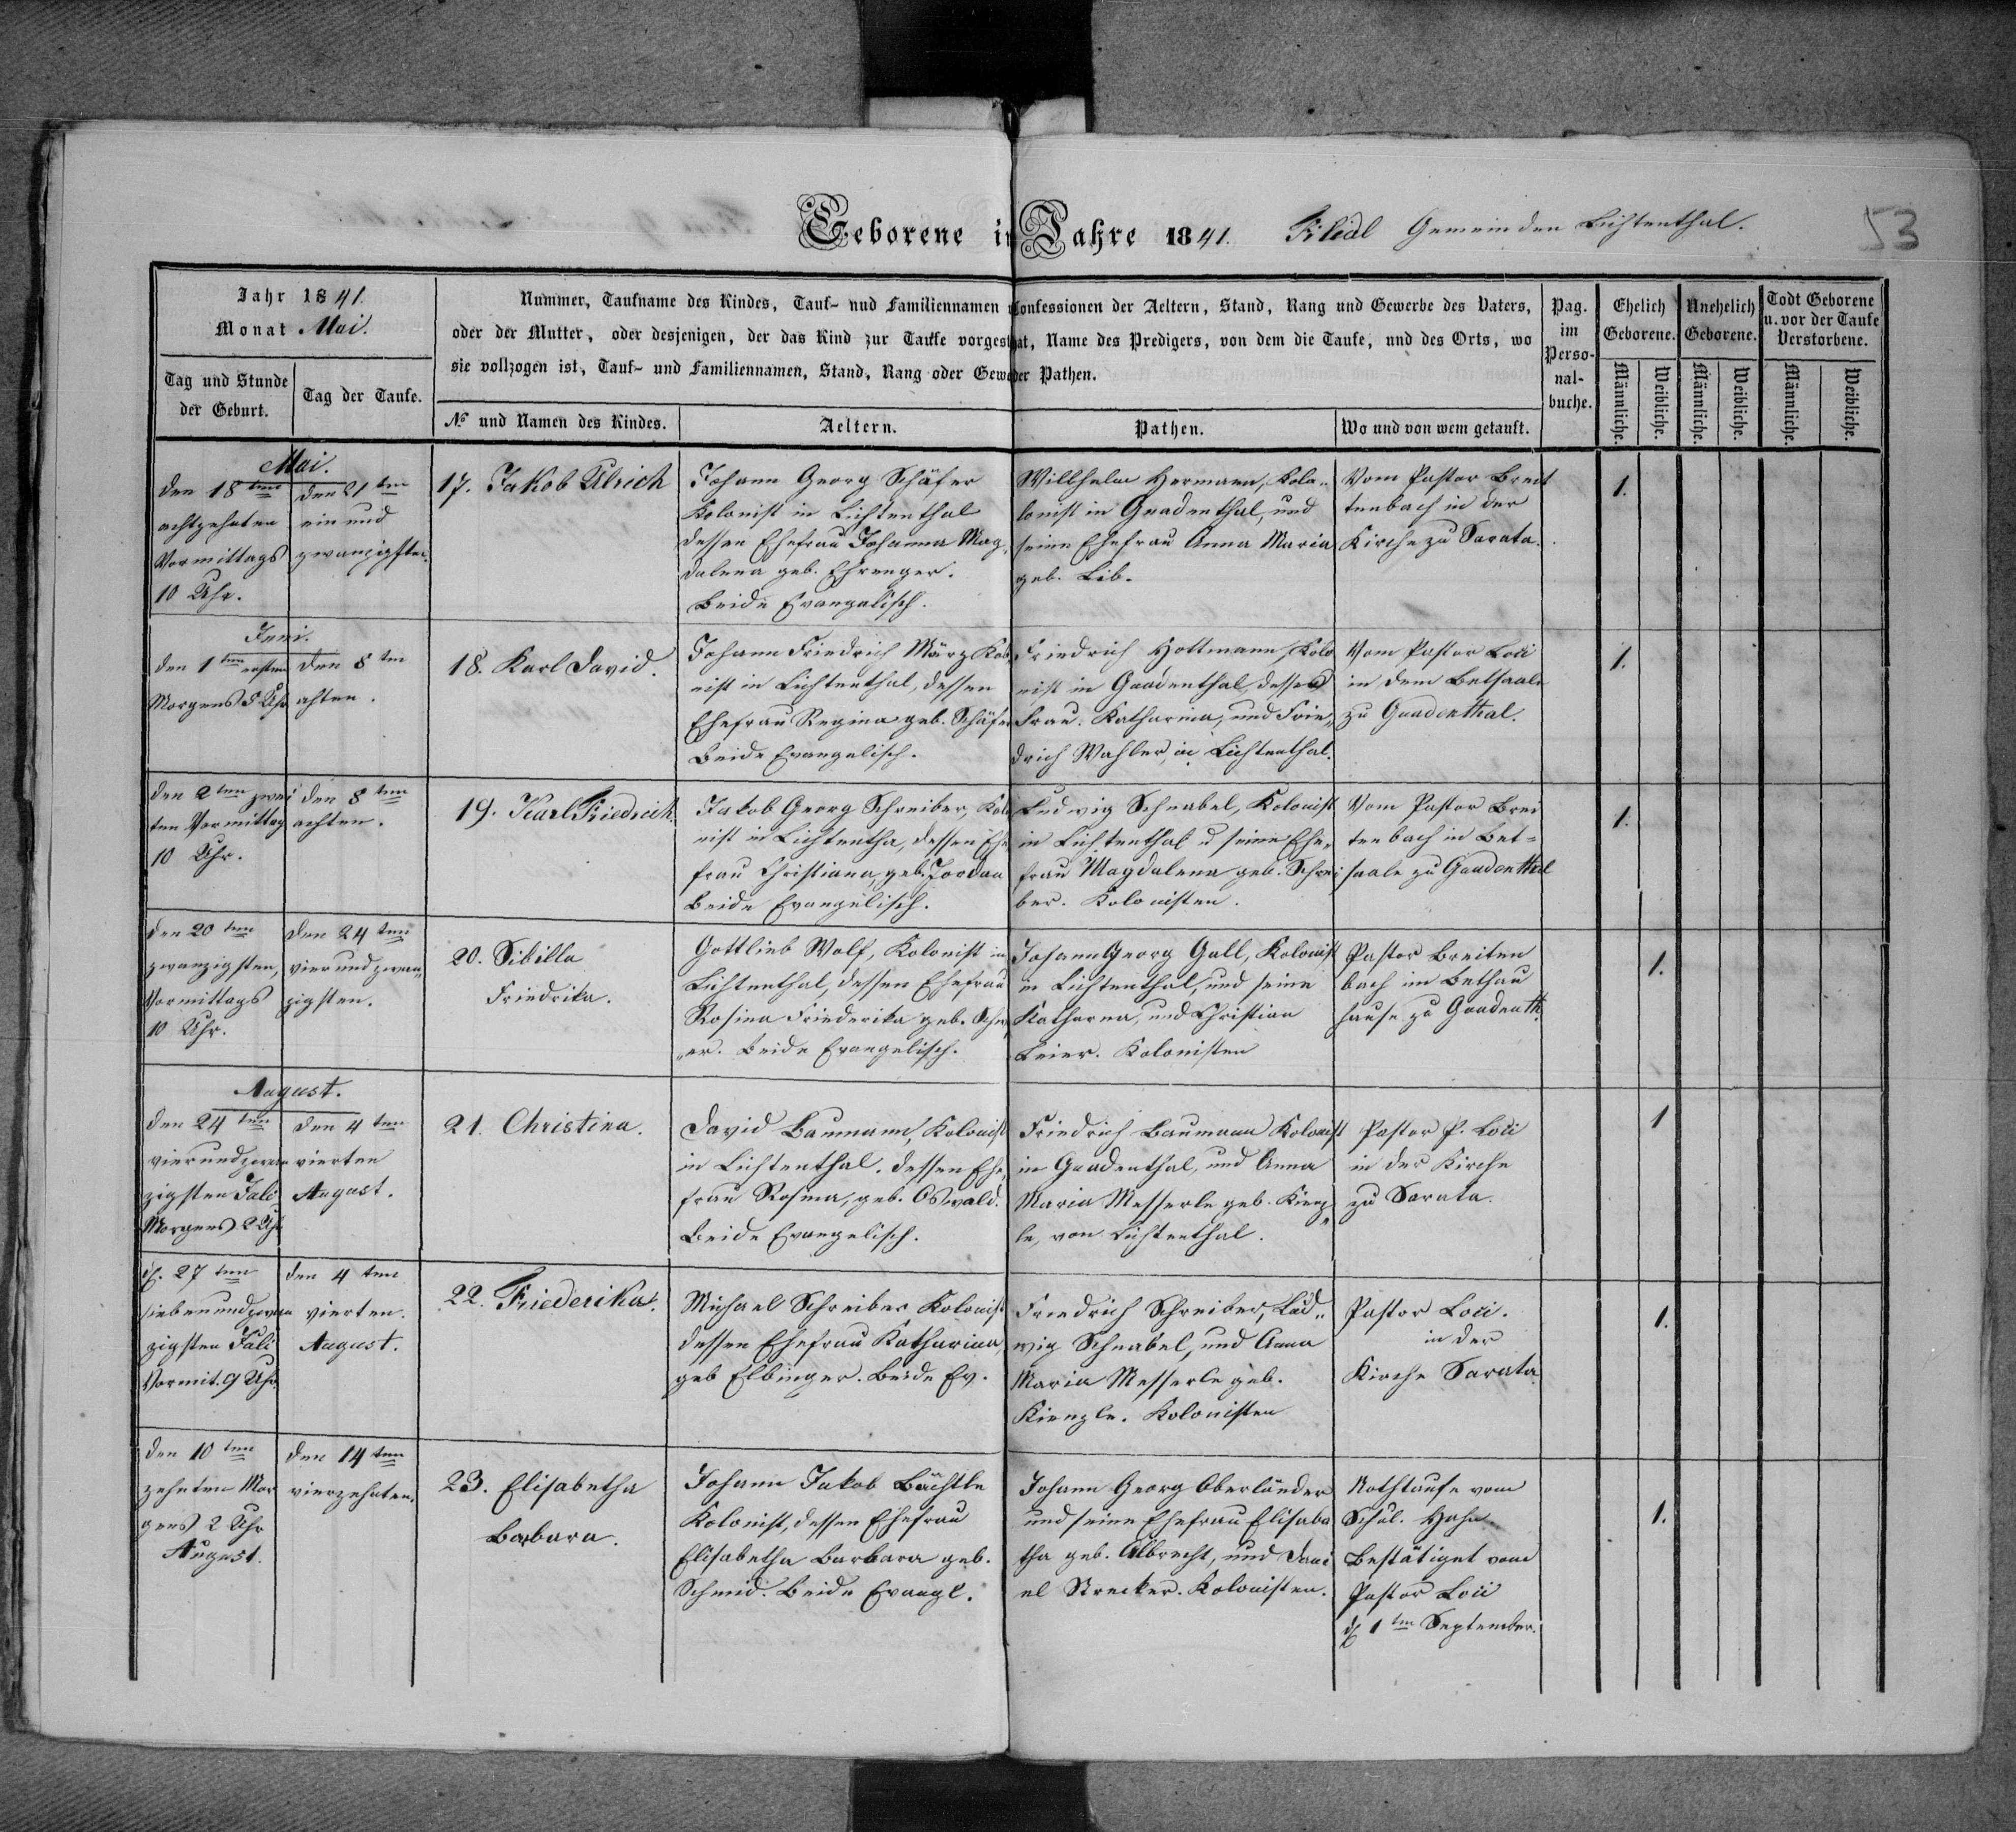 Geborene im Jahre 1841. Filial Gemeinden Lichtenthal.
53
Jahr 1841.
Monat Mai.
Tag und Stunde
der Geburt.
Tag der Taufe.
Nummer, Taufname des Kindes, Tauf- nud Familiennamen Confessionen der Aeltern, Stand, Rang und Gewerbe des Vaters,
oder der Mutter, oder desjenigen, der das Kind zur Taufe vorgest hat, Name des Predigers, von dem die Taufe, und des Orts, wo
sie vollzogen ist, Tauf- und Familiennamen, Stand, Rang oder Gewe der Pathen.
№ und Namen des Kindes.
Aeltern.
Pathen.
Wo und von wem getauft.
Pag.
im
Perso-
nal-
buche.
Ehelich
Geborene.
Unehelich
Geborene.
Todt Geborene
u. vor der Taufe
Verstorbene.
Männliche.
Weibliche.
Männliche.
Weibliche.
Männliche.
Weibliche.
Mai.
den 18ten
achtzehnten
Vormittags
10 Uhr.
den 21ten
ein und
zwanzigsten.
17. Jakob Ulrich
Johann Georg Schäfer
Kolonist in Lichtenthal
dessen Ehefrau Johanna Mag-
dalena geb. Ehrenger.
Beide Evangelisch.
Willhelm Hermann, Kolo-
lonist in Gnadenthal, und
seine Ehefrau Anna Maria
geb. Lib.
Vom Pastor Breit
tenbach in der
Kirche zu Sarata.
1.
Juni.
den 1ten ersten
Morgens 5 Uhr
den 8ten
achten.
18. Karl David.
Johann Friedrich März Kolo
nist in Lichtenthal, dessen
Ehefrau Regina geb. Schäfer
Beide Evangelisch.
Friedrich Hottmann, Kolo
nist in Gnadenthal, dessen
Frau. Katharina, und Frie-
drich Wahler, in Lichtenthal.
Vom Pastor Loci
in dem Betsaale
zu Gnadenthal.
1.
den 2ten zwei
ten Vormittag
10 Uhr.
den 8ten
achten.
19. Karl Friedrich.
Jakob Georg Schreiber, Kolo
nist in Lichtentha, dessen Ehe
frau Christiana, geb. Jordan
Beide Evangelisch.
Ludwig Schnabel, Kolonist
in Lichtenthal u seine Ehe-
frau Magdalena geb. Schrei
ber. Kolonisten.
Vom Pastor Brei
tenbach in Bet-
saale zu Gnadenthal
1.
den 20ten
zwanzigsten,
Vormittags
10 Uhr.
den 24ten
vier und zwan-
zigsten.
20. Sibilla
Friedrika.
Gottlieb Wolf, Kolonist in
Lichtenthal, dessen Ehefrau
Rosina Friederika geb.
er. Beide Evangelisch.
Johann Georg Gall, Kolonist
in Lichtenthal, und seine
Katharna, und Christian
Beier. Kolonisten
Pastor Breiten
bach im Bethau
hause zu Gnadenth.
1.
August.
den 24ten
vierundzwan
zigsten Juli
Morgens 2 Uhr
den 4ten
vierten
August.
21. Christina.
David Baumann, Kolonist
in Lichtenthal. dessen Ehe
frau Rosina, geb. Oswald.
Beide Evangelisch.
Friedrich Baumann Kolonist
in Gnadenthal, und Anna
Maria Messerle, geb. Kienz-
le, von Lichtenthal.
Pastor P. Loci
in der Kirche
zu Sarata.
1
d. 27ten
siebenundzwan
zigsten Juli
Vormit. 9 Uhr.
den 4ten
vierten.
August.
22. Friederika.
Michael Schreiber Kolonist
dessen Ehefrau Katharina,
geb Elbinger. Beide Ev.
Friedrich Schreiber, Lud-
wig Schnabel, und Anna
Maria Messerle geb.
Kienzle. Kolonisten
Pastor Loci.
in der
Kirche Sarata.
1.
den 10ten
zehnten Mor
gens 2 Uhr
August.
den 14ten
vierzehnten.
23. Elisabetha
Barbara.
Johann Jakob Bächtle
Kolonist, dessen Ehefrau
Elisabetha Barbara geb.
Schmid. Beide Evangl.
Johann Georg Oberländer
und seine Ehefrau Elisabe
tha geb. Albrecht, und Dani
el Strecker. Kolonisten.
Nothtaufe vom
Schul. Hahn
Bestätiget vom
Pastor Loci
d 1ten September.
1.